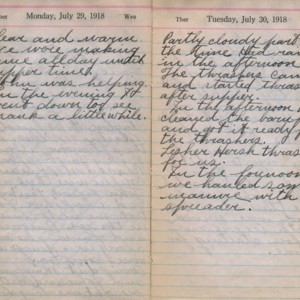 Ther Monday, July 29, 1918 Wea
Clear and warm
we wore making
time all day until
supper time.
John was helping
in the evening It
went down too see
Frank a little while.
Ther Tuesday, July 30, 1918
Partly cloudy part
the time Had rain
in the afternoon
The thrashers cam
and started thrash
after supper.
In the afternoon
cleaned the barn f
and got it ready
the thrashers.
Lesher Hersh thras
for us.
In the founoon
we hauled som
manure with
spreader.